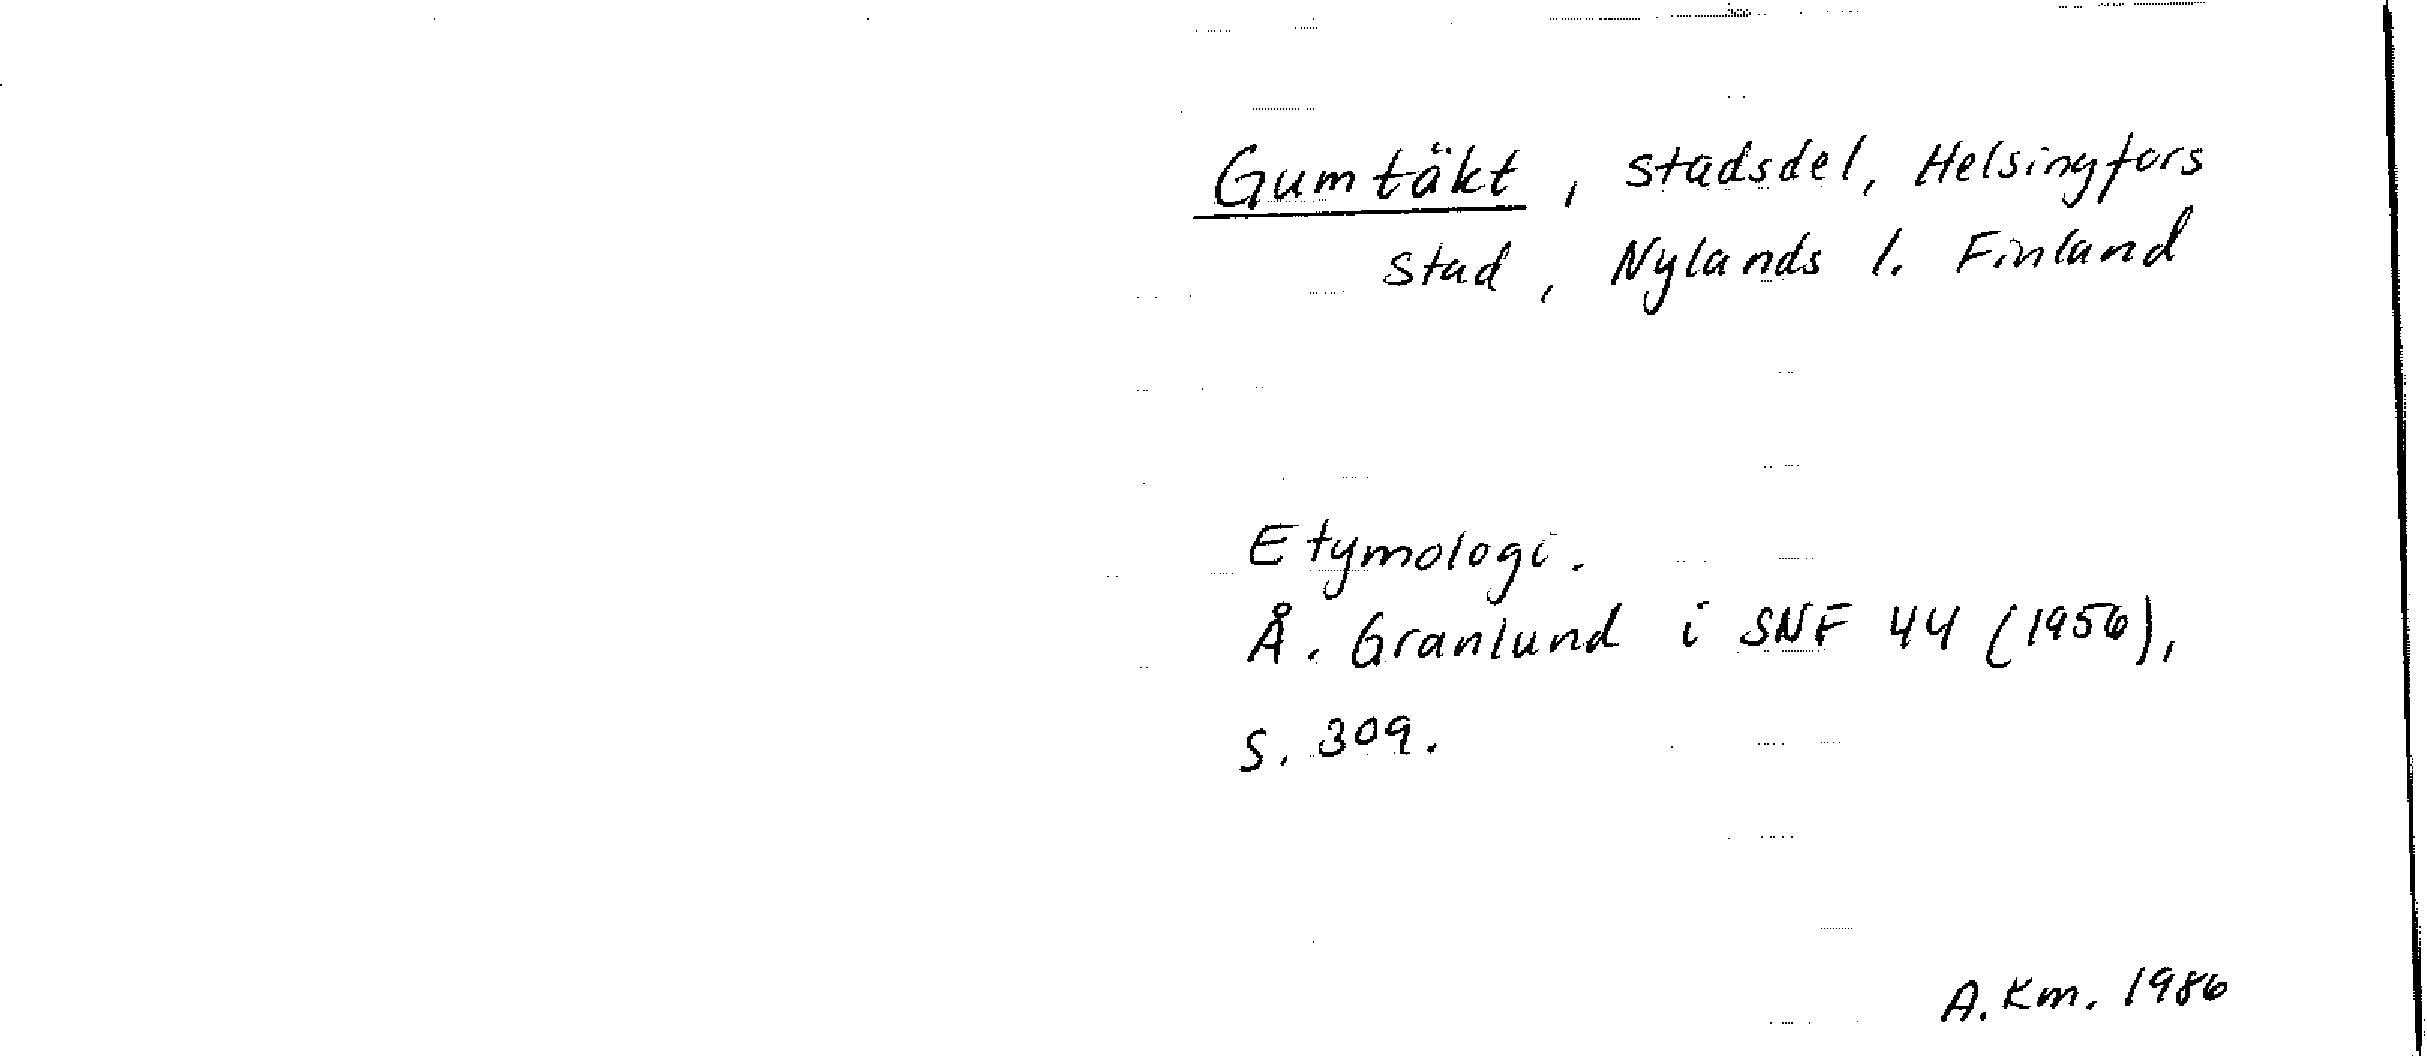 Gumtäkt, stadsdel, Helsingfors
stad, Nylands l. Finland
Etymologi.
Å. Granlund i SNF 44 (1956),
s. 309.
A. Km. 1986